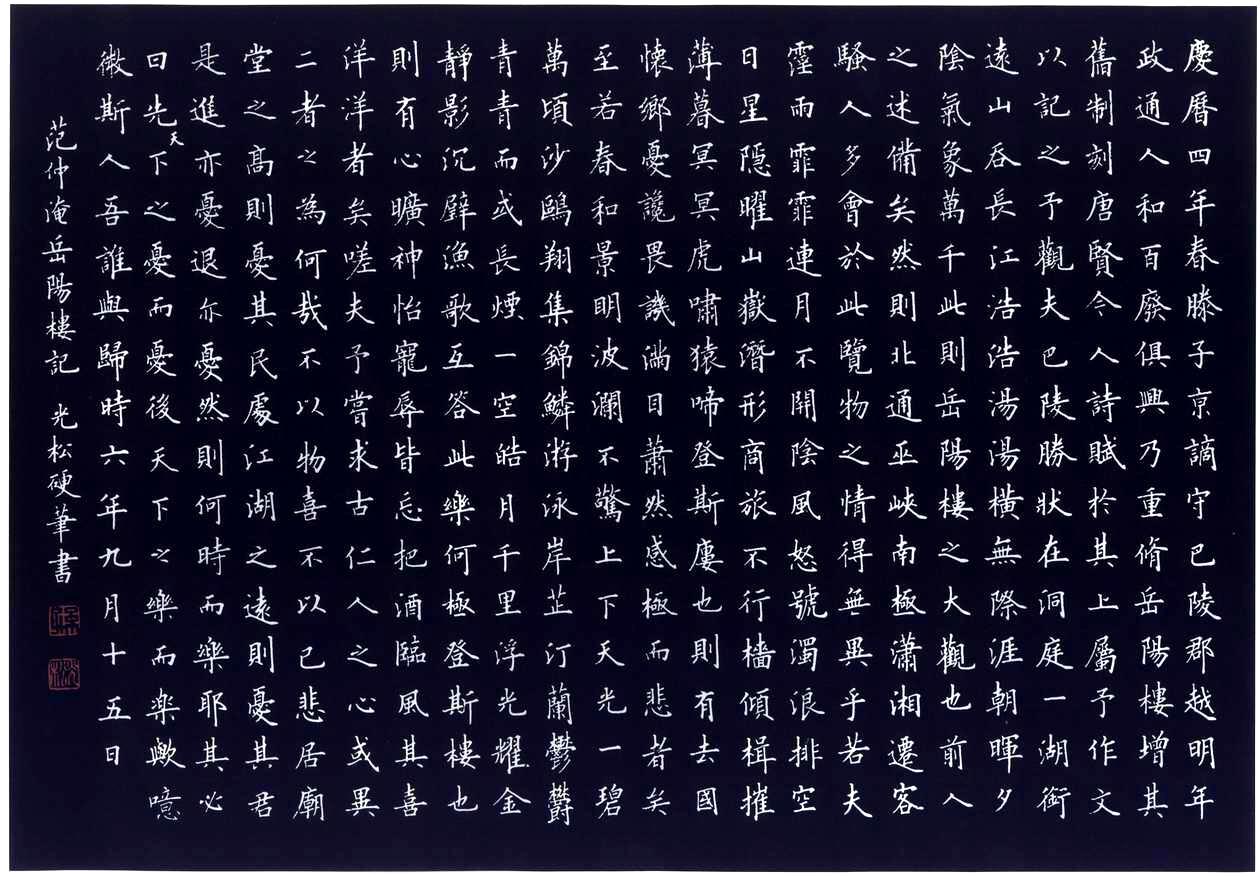 慶曆四年春滕子京謫守巴陵郡越明年
政通人和百廢俱興乃重脩岳陽樓增其
舊制刻唐賢今人詩賦於其上屬予作文
以記之予觀夫巴陵勝狀在洞庭一湖銜
遠山吞長江浩浩湯湯橫無際涯朝暉夕
陰氣象萬千此則岳陽樓之大觀也前人
之述備矣然則北通巫峽南極瀟湘遷客
騷人多會於此覽物之情得無異乎若夫
霪雨霏霏連月不開陰風怒號濁浪排空
日星隱曜山嶽潛形商旅不行檣傾楫摧
薄暮冥冥虎嘯猿啼登斯廔也則有去國
懷鄉憂讒畏譏滿目蕭然感極而悲者矣
至若春和景明波瀾不驚上下天光一碧
萬頃沙鷗翔集錦鱗游泳岸芷汀蘭鬱鬱
青青而或長煙一空皓月千里浮光耀金
靜影沉璧漁歌互答此樂何極登斯樓也
則有心曠神怡寵辱皆忘把酒臨風其喜
洋洋者矣嗟夫予嘗求古仁人之心或異
二者之為何哉不以物喜不以己悲居廟
堂之高則憂其民處江湖之遠則憂其君
是進亦憂退亦憂然則何時而樂耶其必
曰先天下之憂而憂後天下之樂而樂歟噫
微斯人吾誰與歸時六年九月十五日
范仲淹岳陽樓記 光松硬筆書